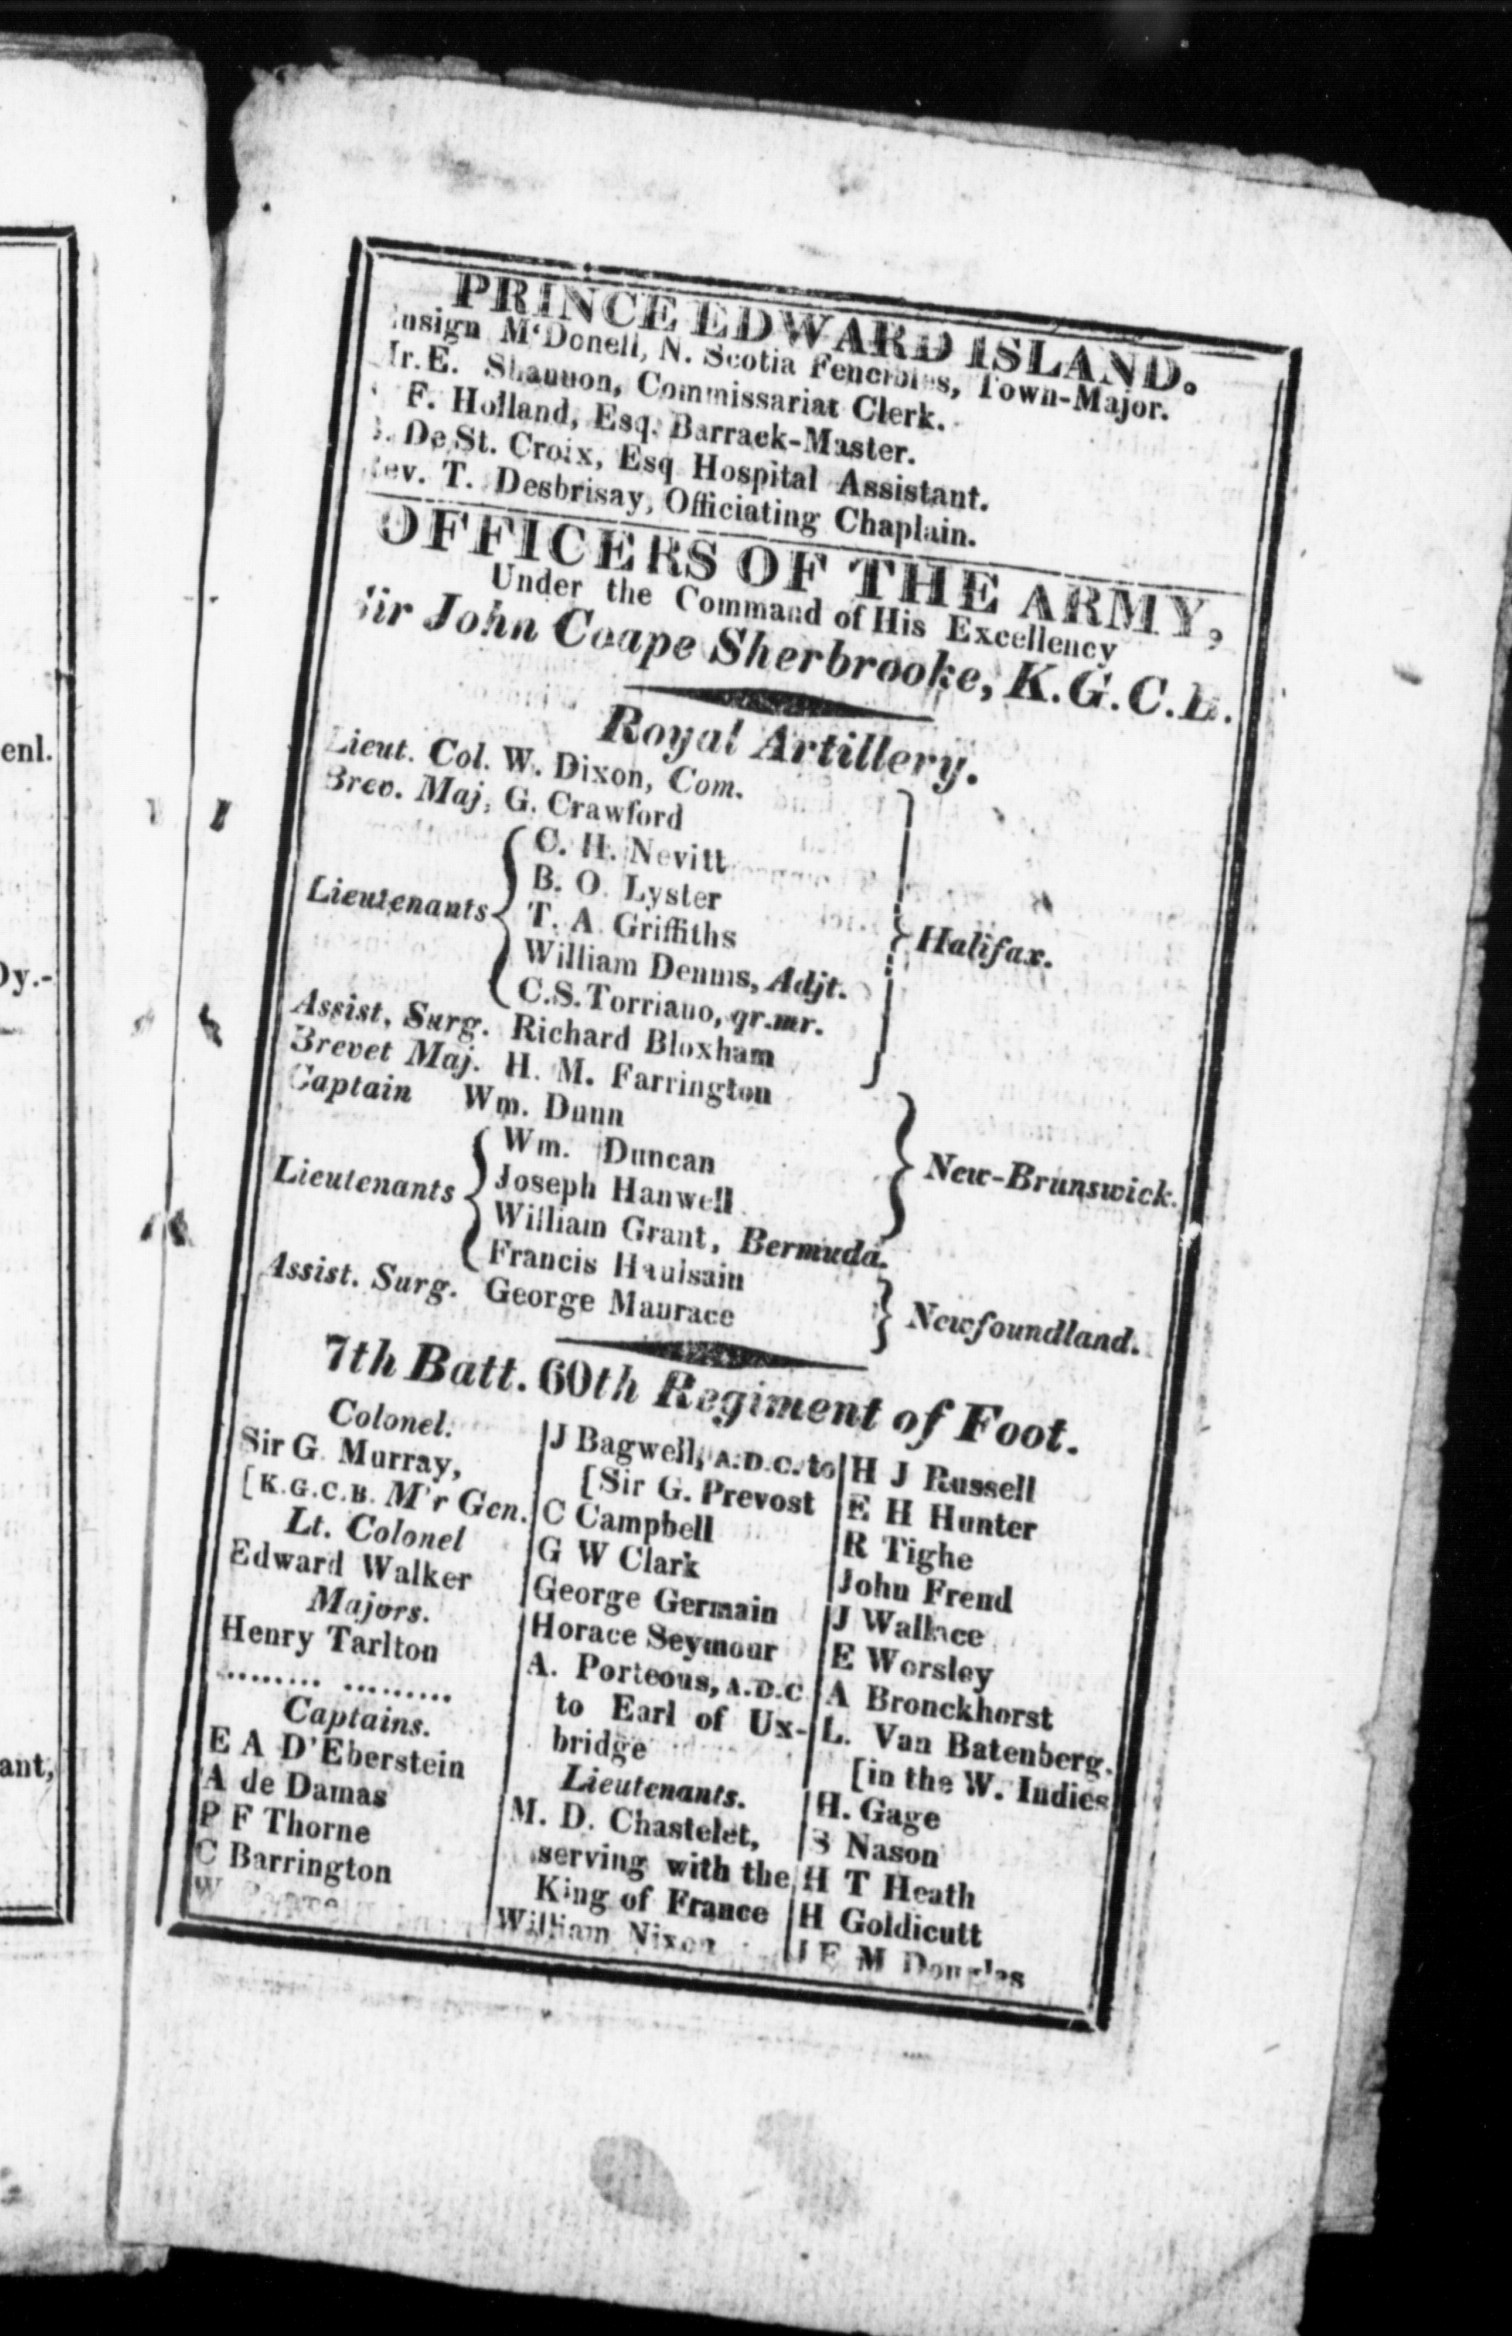 enl.
Dy.-
ant,
PRINCE EDWARD ISLAND.
Ensign M'Donell, N. Scotia Fencibles, Town-Major.
Mr. E. Shannon, Commissariat Clerk.
F. Holland, Esq. Barrack-Master.
De St. Croix, Esq Hospital Assistant.
Rev. T. Desbrisay, Officiating Chaplain.
OFFICERS OF THE ARMY,
Under the Command of His Excellency
Sir John Coape Sherbrooke, K.G.C.B.
Royal Artillery.
Lieut. Col. W. Dixon, Com.
Brev. Maj, G. Crawford
C. H. Nevitt
B. O. Lyster
Lieutenants T. A. Griffiths Halifax.
William Dennis, Adjt.
C.S. Torriano, qr.mr.
Assist. Surg. Richard Bloxham
Brevet Maj. H. M. Farrington
Captain Wm. Dunn
Wm. Duncan
Lieutenants Joseph Hanwell New-Brunswick.
William Grant, Bermuda.
Francis Haulsain
Assist. Surg. George Maurace Newfoundland.
7th Batt. 60th Regiment of Foot.
Colonel.
Sir G. Murray,
[K.G.C.B. M'r Gen.
Lt. Colonel
Edward Walker
Majors.
Henry Tarlton
......... .........
Captains.
E A D'Eberstein
A de Damas
P F Thorne
C Barrington
W
J Bagwell, A.D.C. to
[Sir G. Prevost
C Campbell
G W Clark
George Germain
Horace Seymour
A. Porteous, A.D.C
to Earl of Ux-
bridge
Lieutenants.
M. D. Chastelet,
serving with the
King of France
William Nixon
H J Russell
E H Hunter
R Tighe
John Frend
J Wallace
E Worsley
A Bronckhorst
L. Van Batenberg.
[in the W. Indies
H. Gage
S Nason
H T Heath
H Goldicutt
J E M Douglas